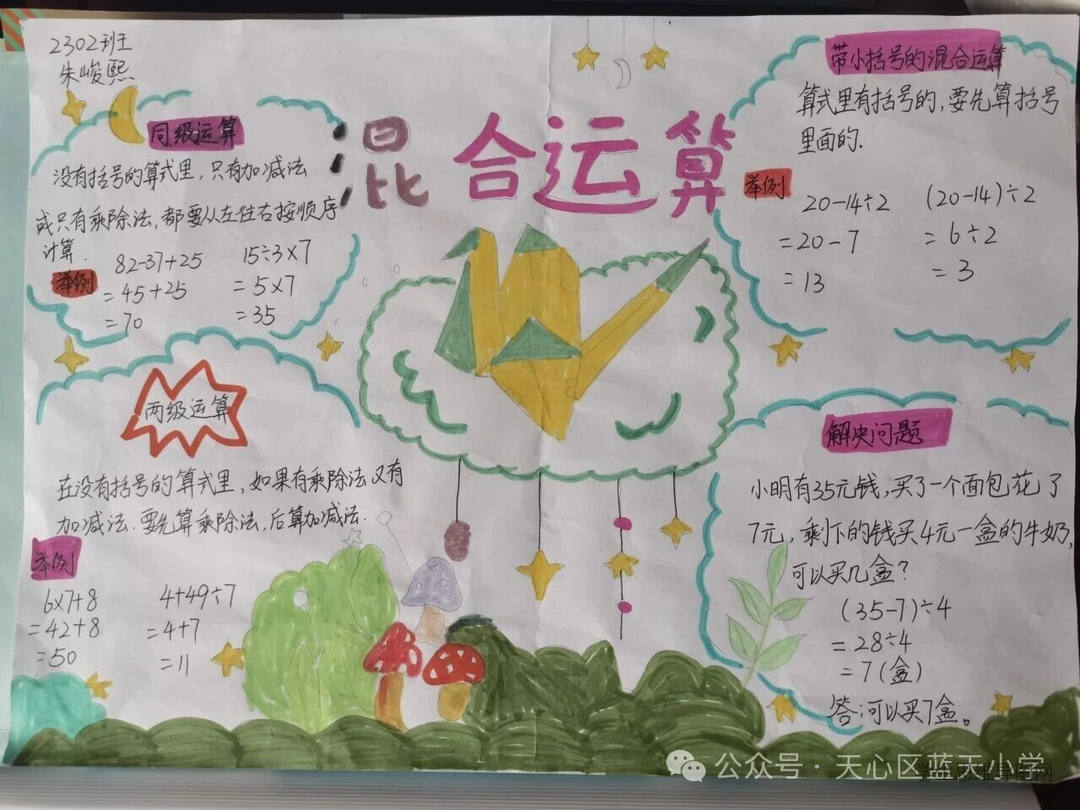 2302班
朱峻熙
混合运算
同级运算
没有括号的算式里，只有加减法
或只有乘除法，都要从左往右按顺序
计算.
举例
82-37+25
=45+25
=70
15÷3×7
=5×7
=35
两级运算
在没有括号的算式里，如果有乘除法又有
加减法.要先算乘除法，后算加减法.
举例
6×7+8
=42+8
=50
4+49÷7
=4+7
=11
带小括号的混合运算
算式里有括号的，要先算括号
里面的.
举例
20-14÷2
=20-7
=13
(20-14)÷2
=6÷2
=3
解决问题
小明有35元钱，买了一个面包花了
7元，剩下的钱买4元一盒的牛奶，
可以买几盒？
(35-7)÷4
=28÷4
=7(盒)
答:可以买7盒。
公众号·天心区蓝天小学